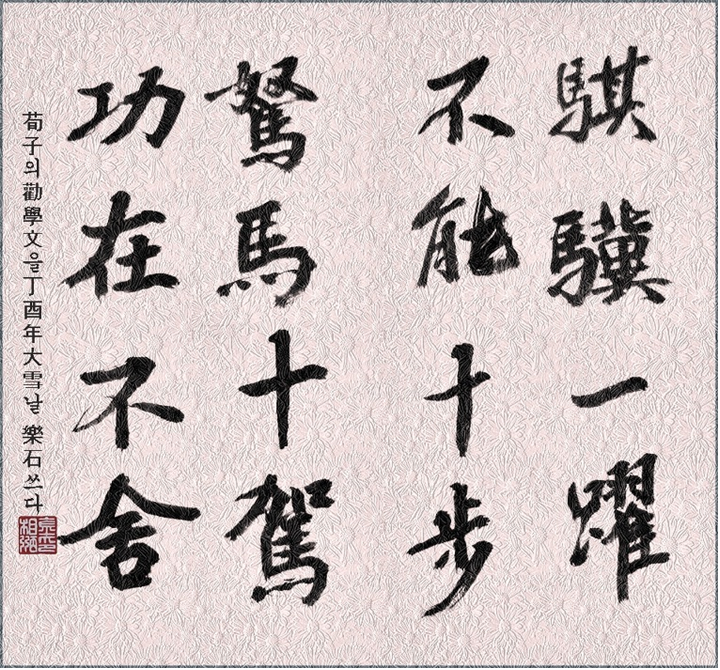 騏驥一躍
不能十步
駑馬十駕
功在不舍
荀子의 勸學文을 丁酉年 大雪날 樂石 쓰다